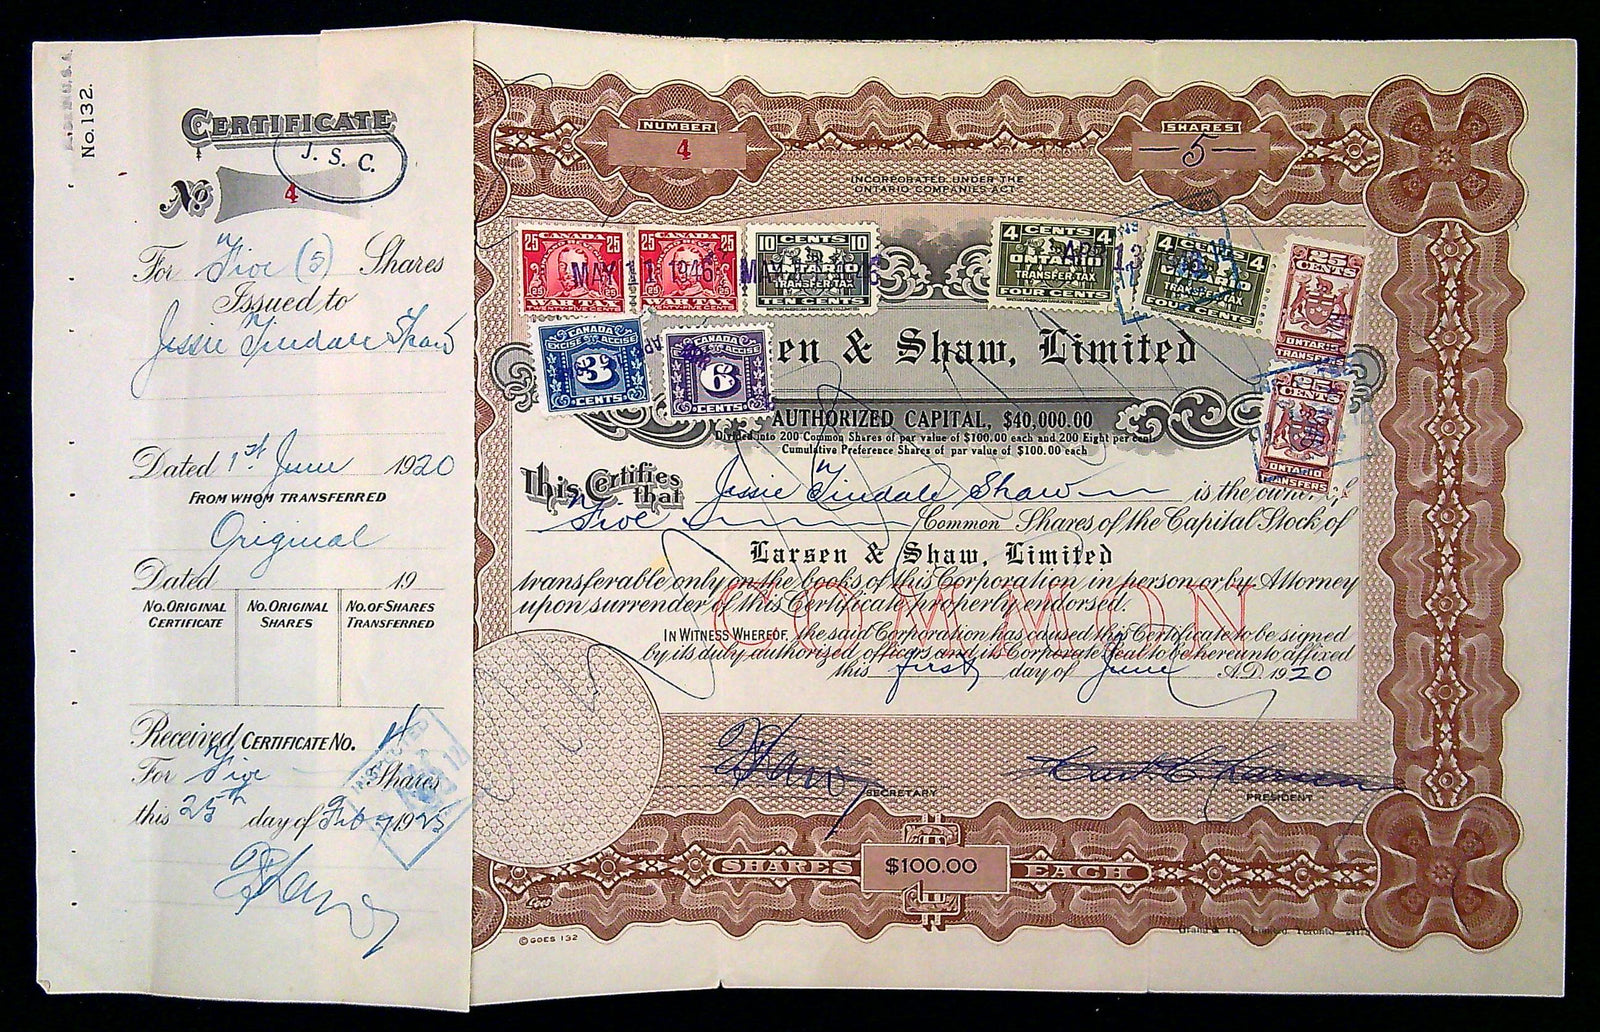 No. 132.
CERTIFICATE
J. S. C.
No 4
For Five (5) Shares
Issued to
Jessie Tindale Shaw
Dated 1st June 1920
FROM WHOM TRANSFERRED
Original
Dated 19
NO. ORIGINAL CERTIFICATE
NO. ORIGINAL SHARES
NO. OF SHARES TRANSFERRED
Received CERTIFICATE NO. 4
For Five Shares
this 25th day of Feby 1925
INSPECTED
NUMBER
4
SHARES
5
INCORPORATED UNDER THE
ONTARIO COMPANIES ACT
25 CANADA 25
WAR TAX
TWENTY-FIVE CENTS
25 CANADA 25
WAR TAX
TWENTY-FIVE CENTS
MAY 11 1946
10 CENTS 10
ONTARIO
TRANSFER TAX
TEN CENTS
4 CENTS 4
ONTARIO
TRANSFER TAX
FOUR CENTS
4 CENTS 4
ONTARIO
TRANSFER TAX
FOUR CENTS
25
CENTS
ONTARIO
TRANSFERS
25
CENTS
ONTARIO
TRANSFERS
CANADA
EXCISE ACCISE
3
CENTS
CANADA
EXCISE ACCISE
6
CENTS
en & Shaw, Limited
AUTHORIZED CAPITAL, $40,000.00
Divided into 200 Common Shares of par value of $100.00 each and 200 Eight per cent
Cumulative Preference Shares of par value of $100.00 each
This Certifies that Jessie Tindale Shaw is the owner of
Five Common Shares of the Capital Stock of
Larsen & Shaw, Limited
transferable only on the books of this Corporation in person or by Attorney
upon surrender of this Certificate properly endorsed.
COMMON
IN WITNESS WHEREOF, the said Corporation has caused this Certificate to be signed
by its duly authorized officers and its Corporate Seal to be hereunto affixed
this first day of June A.D. 1920
SECRETARY
PRESIDENT
SHARES $100.00 EACH
Goes
© GOES 132